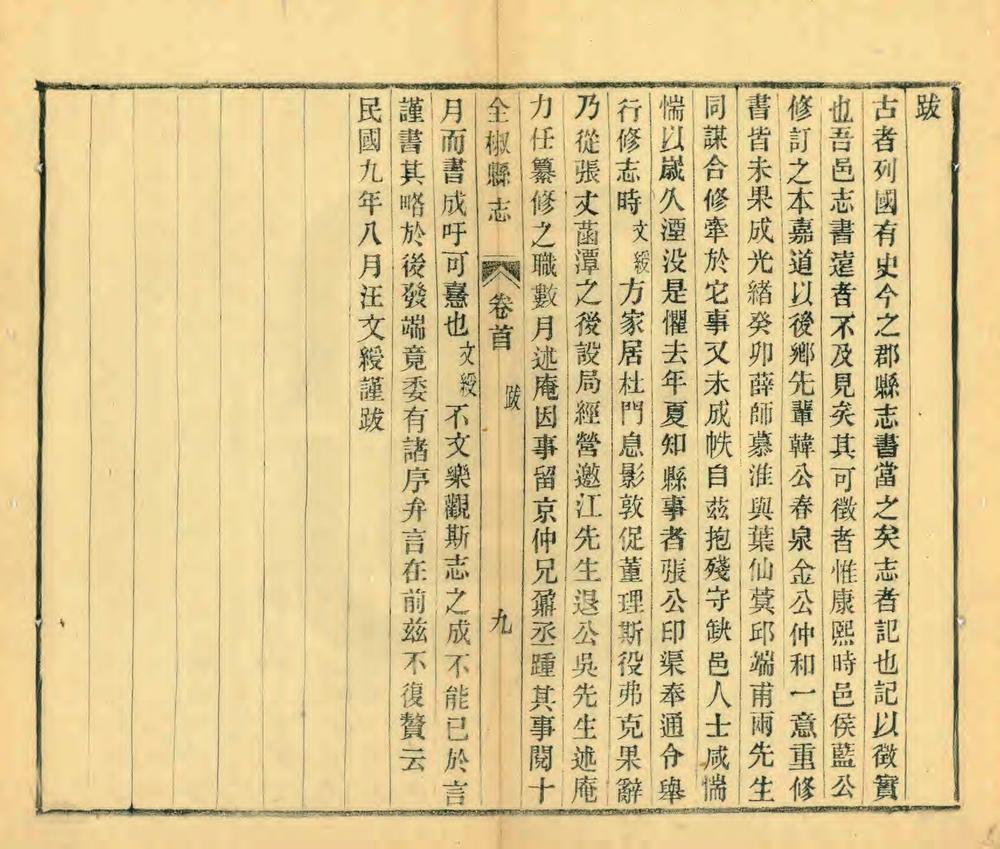 跋
古者列國有史今之郡縣志書當之矣志者記也記以徵實
也吾邑志書遠者不及見矣其可徵者惟康熙時邑侯藍公
修訂之本嘉道以後鄉先輩韓公春泉金公仲和一意重修
書皆未果成光緒癸卯薛師慕淮與葉仙蓂邱端甫兩先生
同謀合修牽於它事又未成帙自兹抱殘守缺邑人士咸惴
惴以歲久湮没是懼去年夏知縣事者張公印渠奉通令舉
行修志時文綬方家居杜門息影敦促董理斯役弗克果辭
乃從張丈菡潭之後設局經營邀江先生退公吳先生述庵
力任纂修之職數月述庵因事留京仲兄鼐丞踵其事閱十
全椒縣志
卷首
跋
九
月而書成吁可憙也文綬不文樂觀斯志之成不能已於言
謹書其略於後發端竟委有諸序弁言在前兹不復贅云
民國九年八月汪文綬謹跋